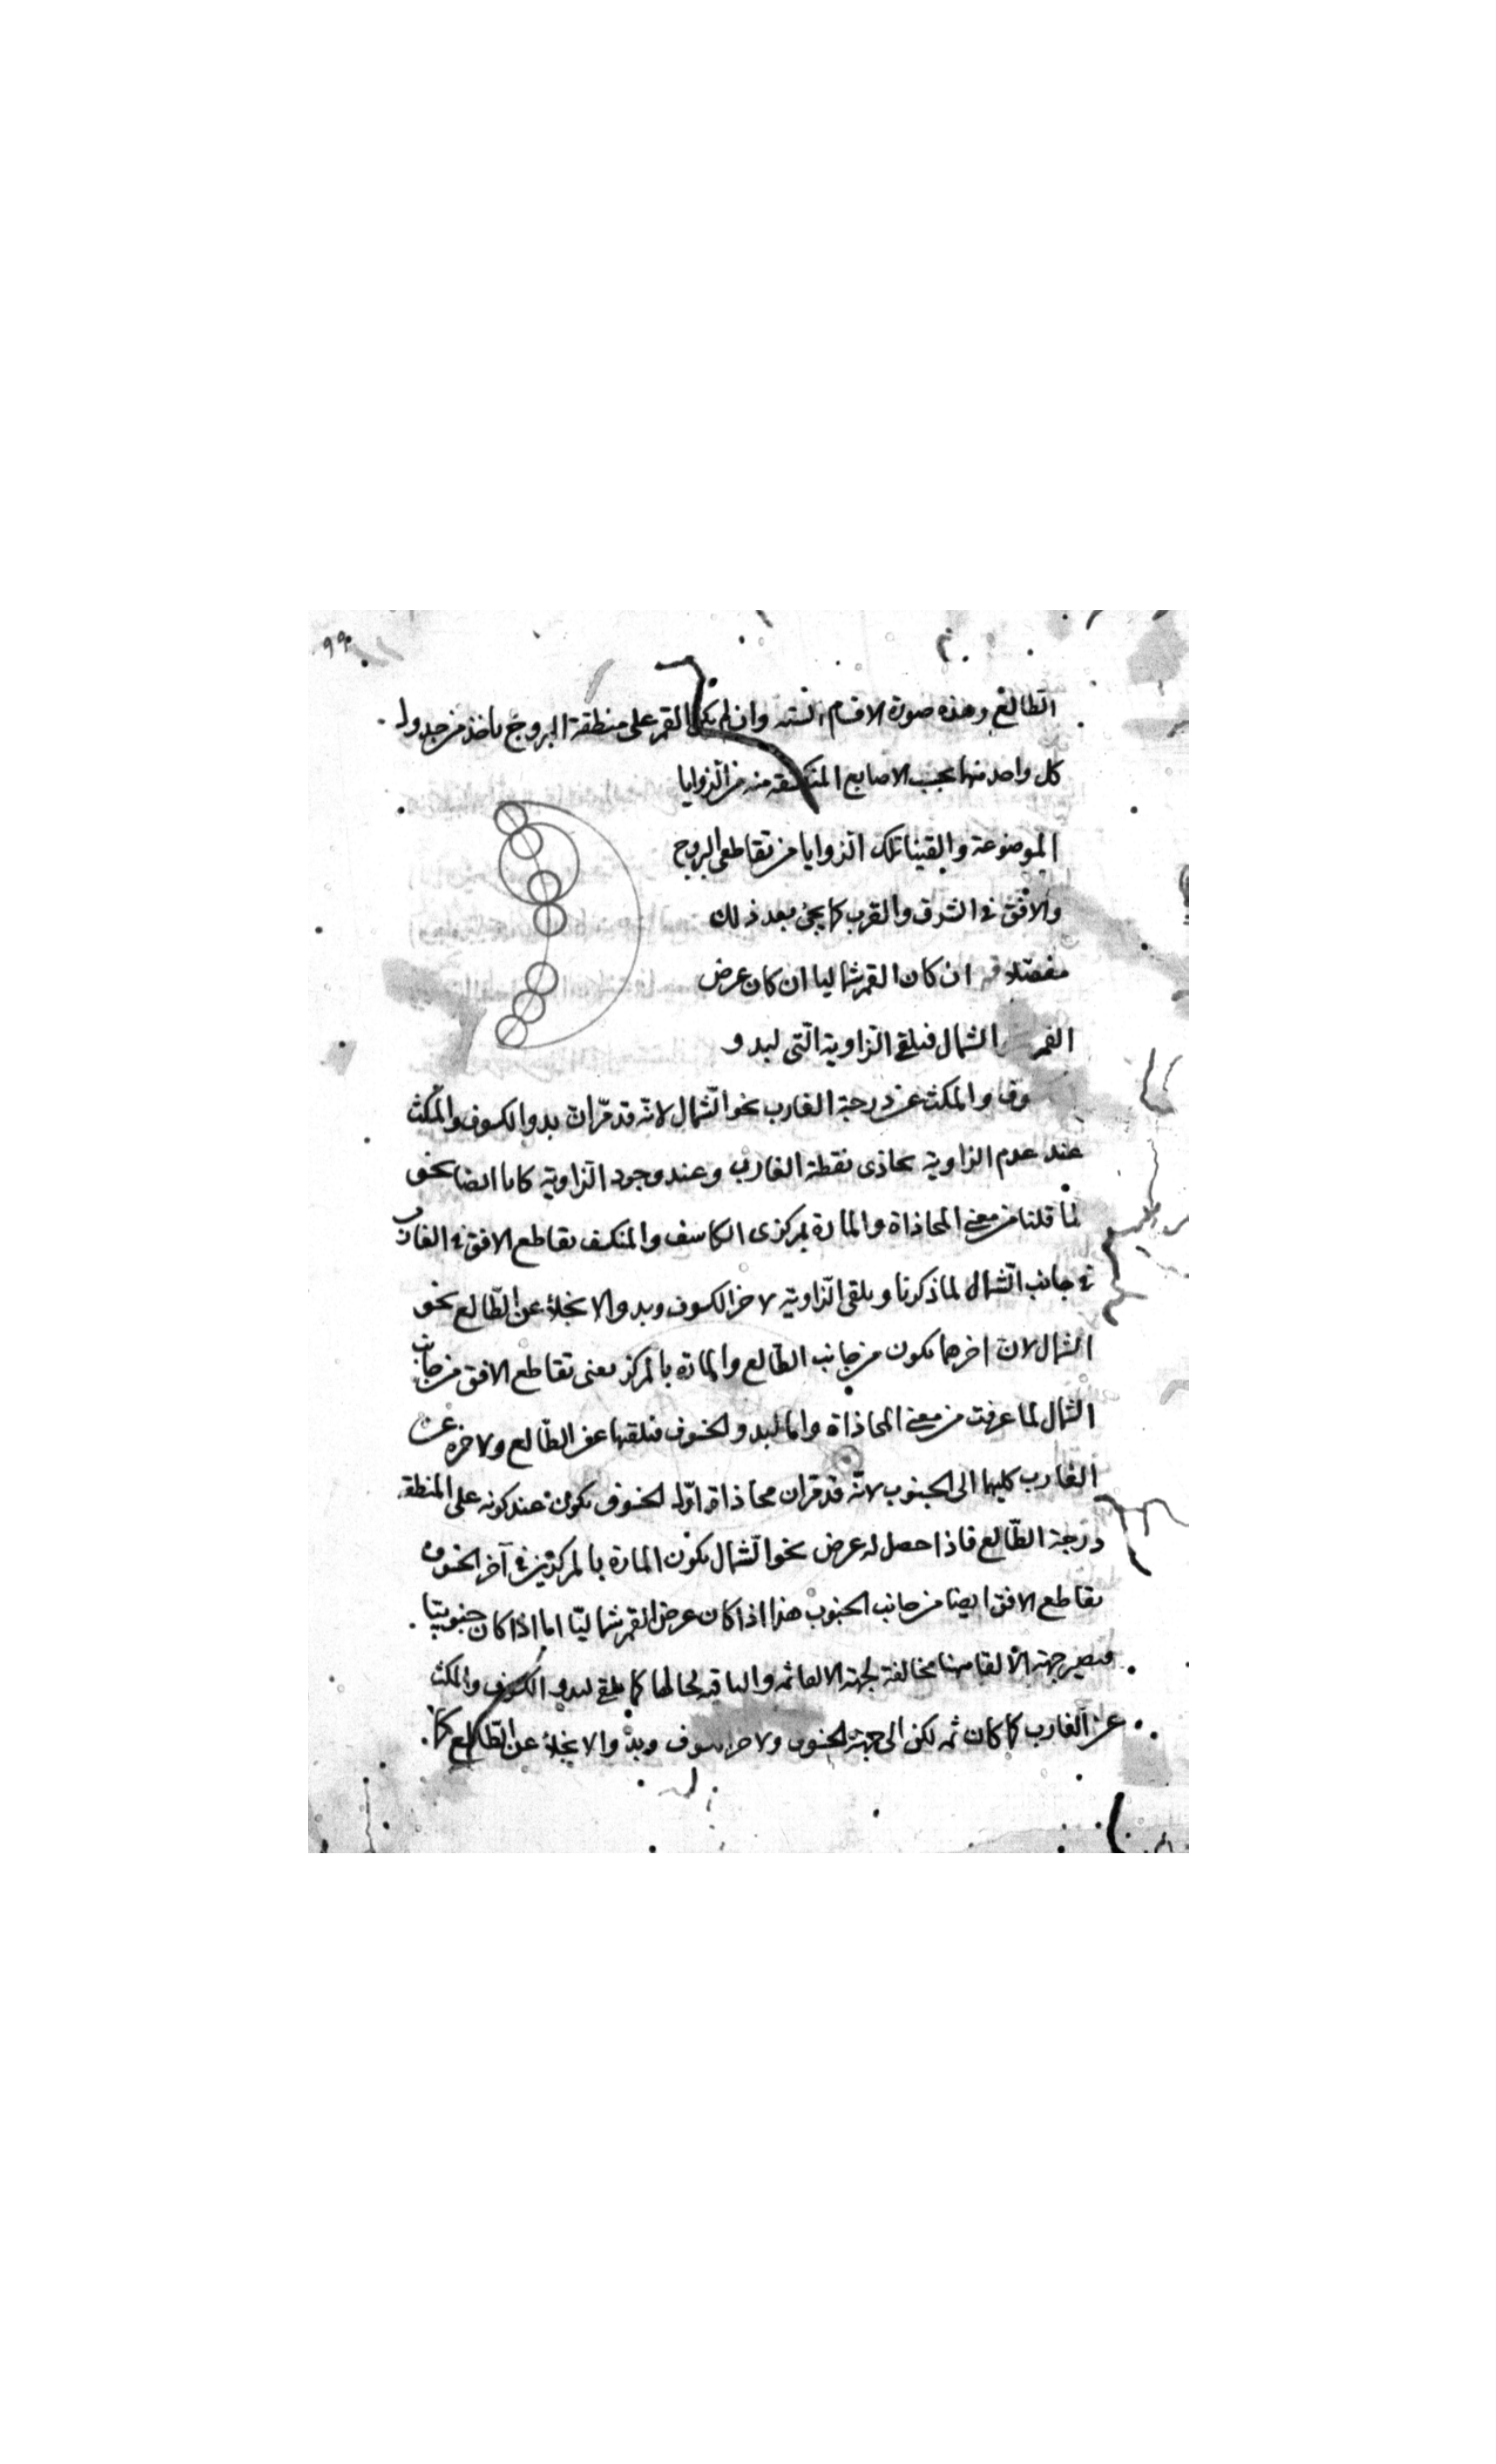 ٩٩
الطالع وهذه صورة الاقسام الستة وان لم يكن القمر على منطقة البروج ناخذ من جدول
كل واحد منها بحسب الاصابع المنكسفة منه من الزوايا
الموضوعة والقينا تلك الزوايا من تقاطعى البروج
والافق فى الشرق والغرب كما يجئ بعد ذلك
مفصّلا ان كان القمر شماليا ان كان عرض
القمر الشمال فيلقى الزاوية التى لبدو
والمكث عن درجة الغارب نحو الشمال لانه قد مرّ ان بدو الكسوف والمكث
عند عدم الزاوية يحاذى نقطة الغارب وعند وجود الزاوية كانا ايضا نحو
لما قلنا من معنى المحاذاة والمارة بمركزى الكاسف والمنكسف تقاطع الافق فى الغارب
فى جانب الشمال لما ذكرنا ويلقى الزاوية لاخر الكسوف وبدو الانجلاء عن الطالع نحو
الشمال لان اخرهما يكون من جانب الطالع والمارة بالمركز يعنى تقاطع الافق من جانب
الشمال لما عرفت من معنى المحاذاة واما لبدو الخسوف فنلقيها عن الطالع ولاخره عن
الغارب كليهما الى الجنوب لانه قد مر ان محاذاة اول الخسوف يكون عند كونه على المنطقة
درجة الطالع فاذا حصل له عرض نحو الشمال يكون المارة بالمركزين فى آخر الخسوف
تقاطع الافق ايضا من جانب الجنوب هذا اذا كان عرض القمر شماليا اما اذا كان جنوبيا
فتصير جهة الالقا ههنا مخالفة لجهة الالقا ثمه والباقيه بحالها كما يلقى لبدو الكسوف والمكث
عن الغارب كما كان ثمه لكن الى جهة الجنوب ولاخر وبدو الانجلاء عن الطالع كما